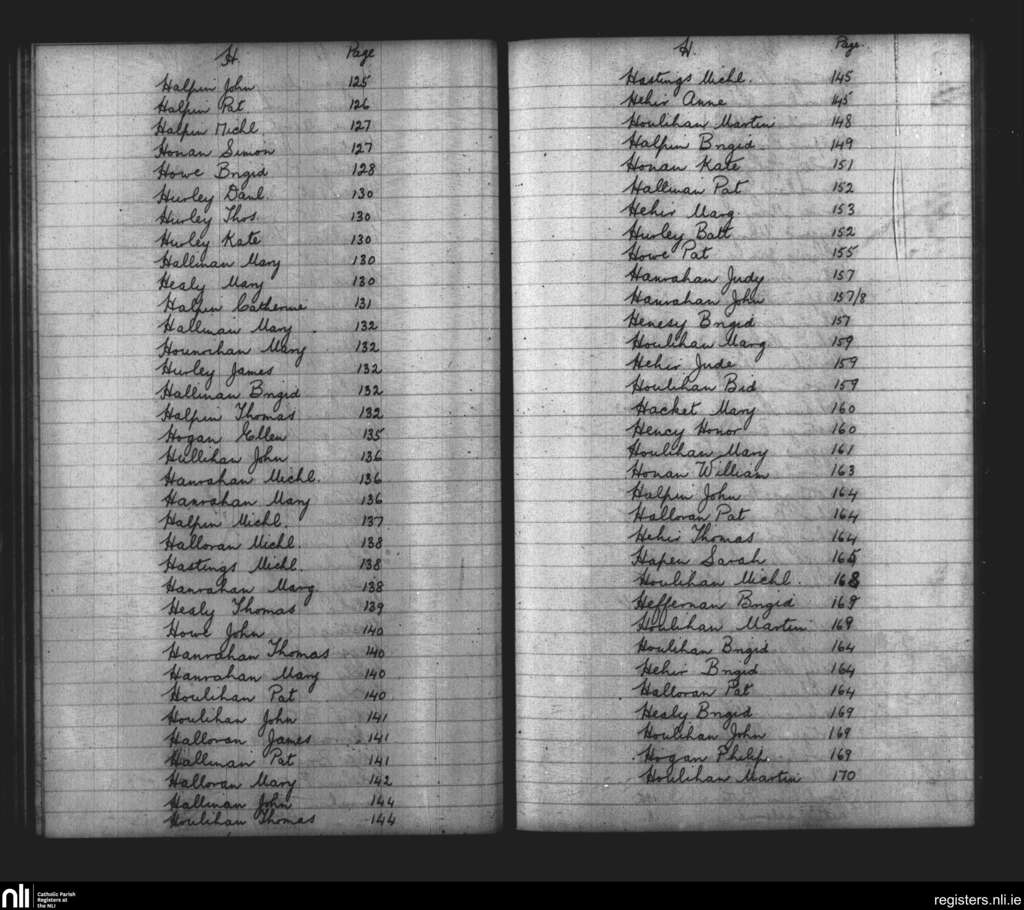 H. Page
Halpin John 125
Halpin Pat 126
Halpin Michl. 127
Honan Simon 127
Howe Brigid 128
Hurley Danl. 130
Hurley Thos. 130
Hurley Kate 130
Hallinan Mary 130
Healy Mary 130
Halpin Catherine 131
Hallinan Mary 132
Hounihan Mary 132
Hurley James 132
Hallinan Brigid 132
Halpin Thomas 132
Hogan Ellen 135
Hullihan John 136
Hanrahan Michl. 136
Hanrahan Mary 136
Halpin Michl. 137
Halloran Michl. 138
Hastings Michl. 138
Hanrahan Marg 138
Healy Thomas 139
Howe John 140
Hanrahan Thomas 140
Hanrahan Mary 140
Houlihan Pat 140
Houlihan John 141
Halloran James 141
Hallinan Pat 141
Halloran Mary 142
Hallinan John 144
Houlihan Thomas 144
H. Page.
Hastings Michl. 145
Hehir Anne 145
Houlihan Martin 148
Halpin Brigid 149
Honan Kate 151
Hallinan Pat 152
Hehir Marg 153
Hurley Batt 152
Howe Pat 155
Hanrahan Judy 157
Hanrahan John 157/8
Henesy Brigid 157
Houlihan Marg 159
Hehir Jude 159
Houlihan Bid 159
Hacket Mary 160
Hency Honor 160
Houlihan Mary 161
Honan William 163
Halpin John 164
Halloran Pat 164
Hehir Thomas 164
Hapen Sarah 165
Houlihan Michl. 168
Heffernan Brigid 169
Houlihan Martin 169
Houlihan Brigid 164
Hehir Brigid 164
Halloran Pat 164
Healy Brigid 169
Houlihan John 169
Hogan Philip 169
Houlihan Martin 170
nli Catholic Parish
Registers at
the NLI
registers.nli.ie